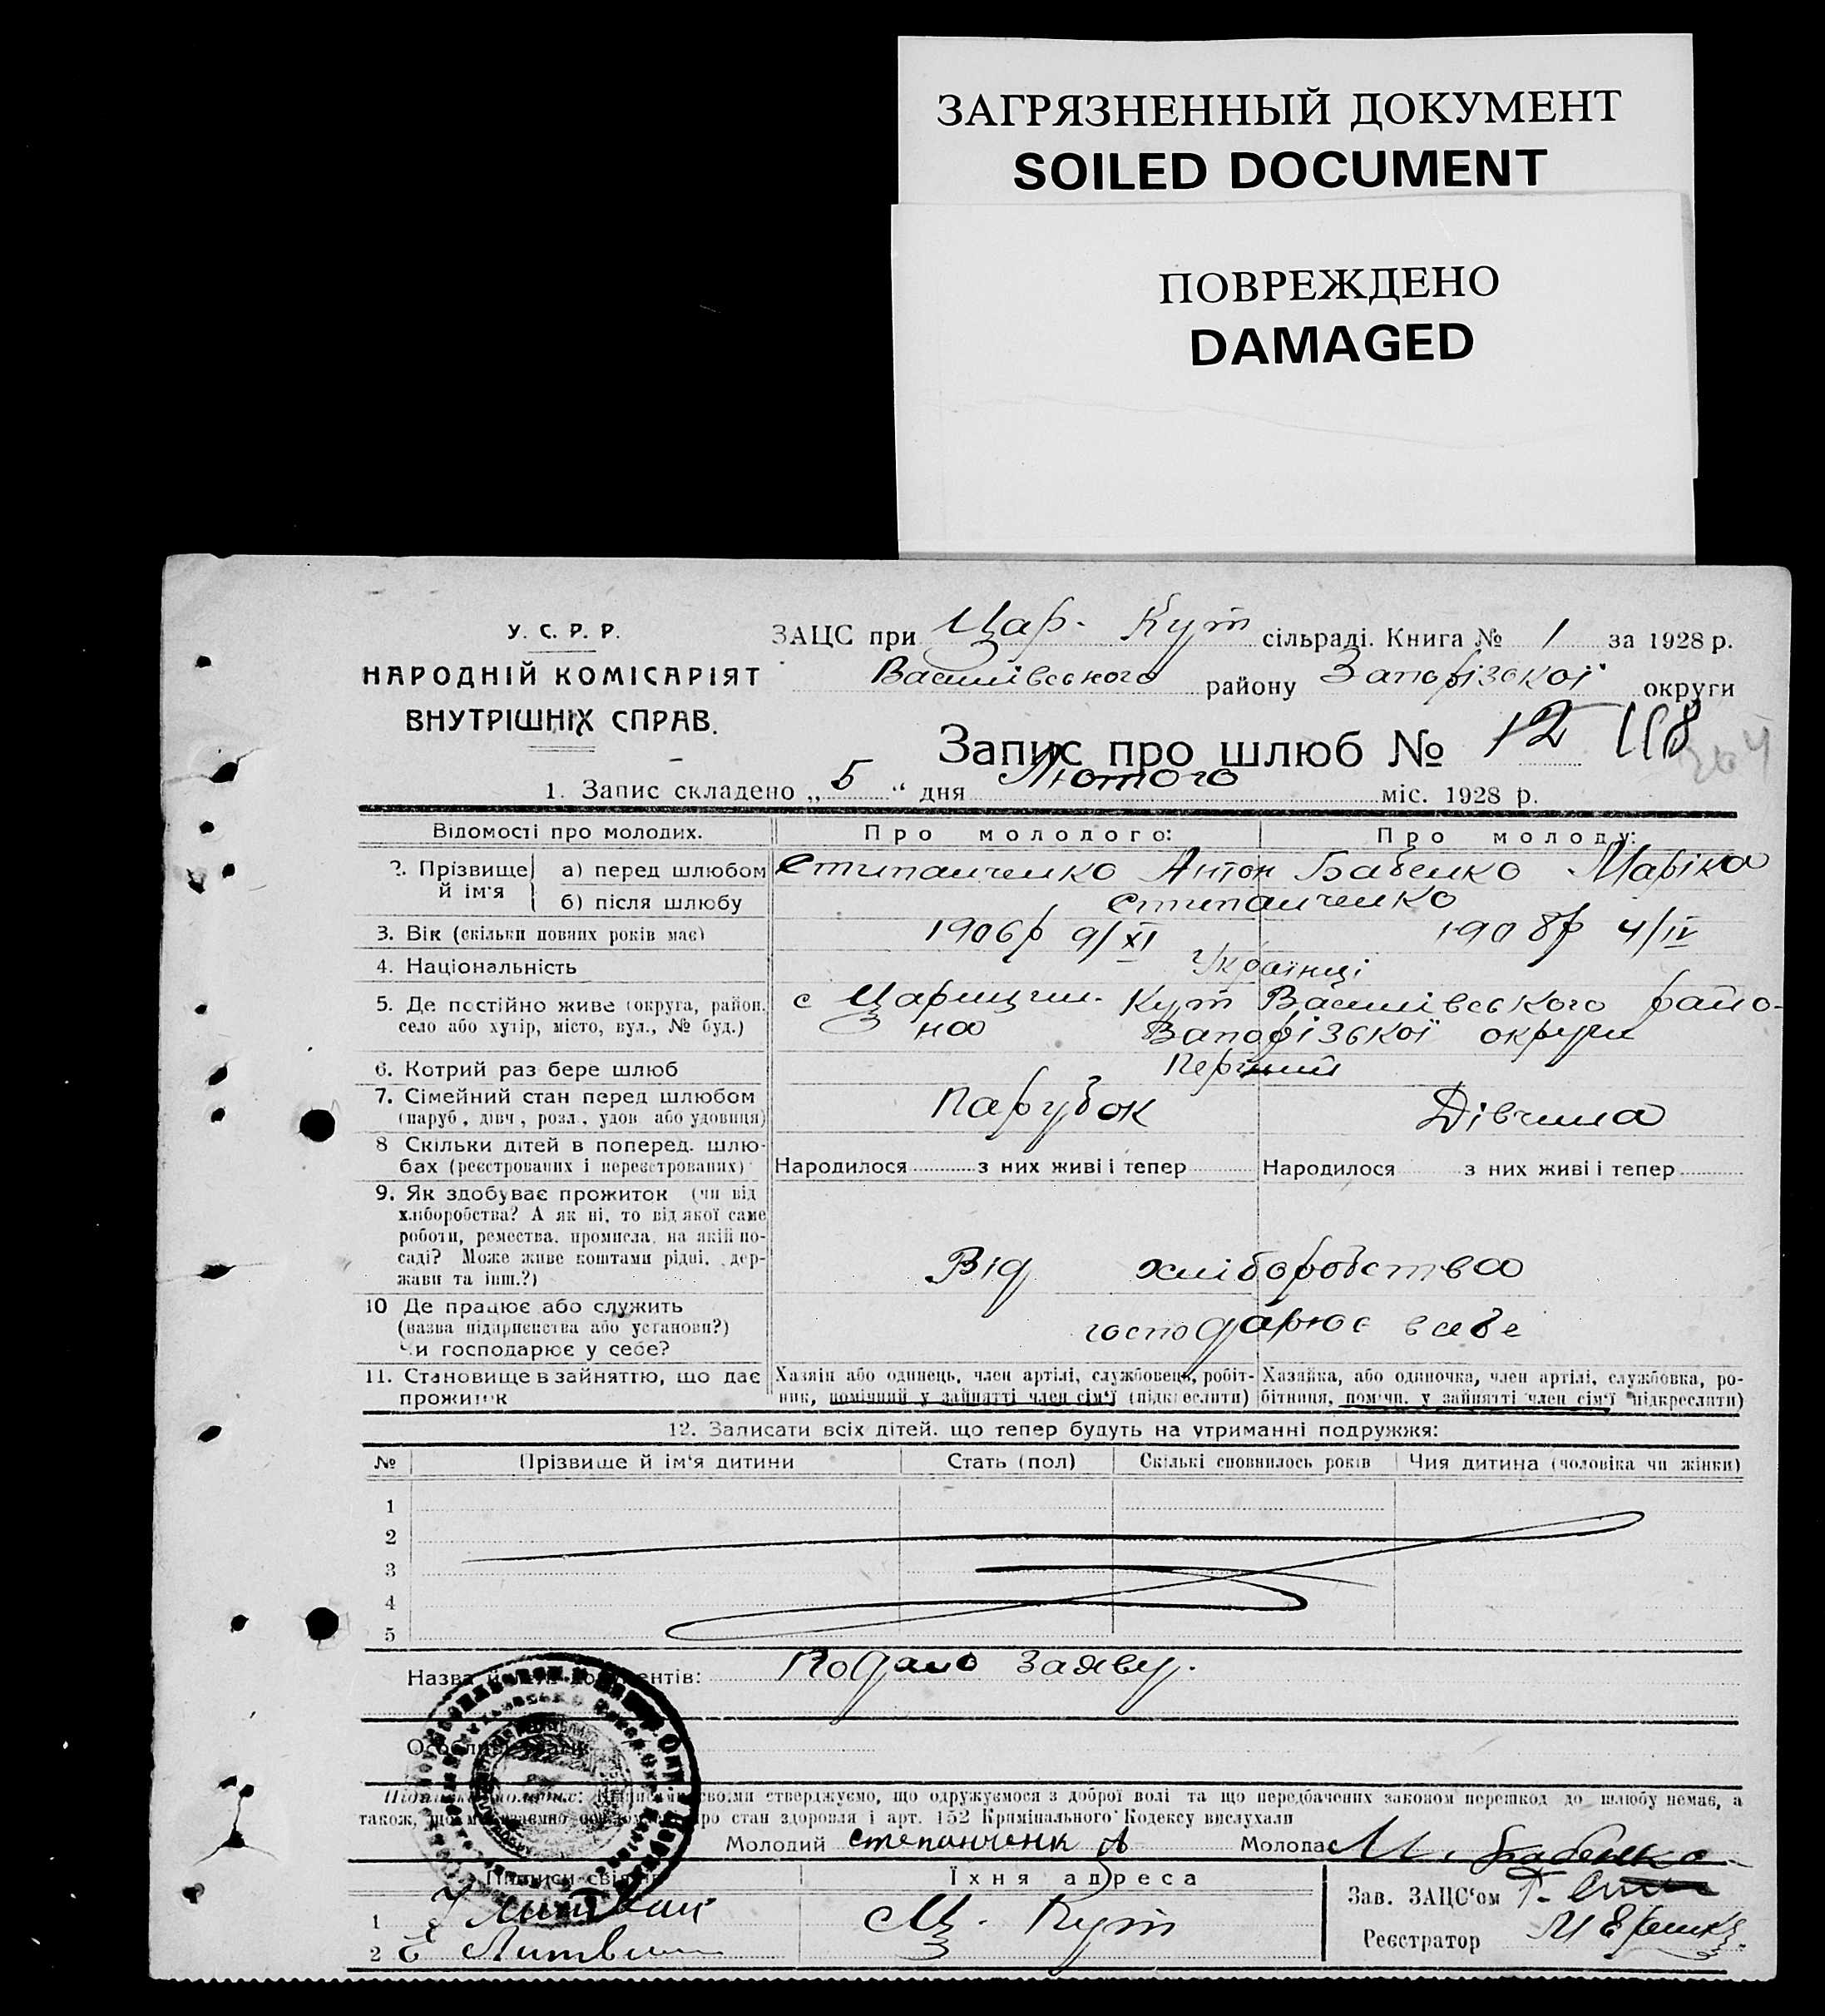 ЗАГРЯЗНЕННЫЙ ДОКУМЕНТ
SOILED DOCUMENT
ПОВРЕЖДЕНО
DAMAGED
У. С. Р. Р.
НАРОДНІЙ КОМІСАРІЯТ
ВНУТРІШНІХ СПРАВ.
ЗАЦС при Цар. Кут сільраді. Книга № 1 за 1928 р.
Василівського району Запорізської округи
Запис про шлюб № 12 118
264
1. Запис складено „5“ дня Лютого міс. 1928 р.
Відомості про молодих. Про молодого: Про молоду:
2. Прізвище й ім'я а) перед шлюбом Стипанченко Антон Бабенко Маріка
б) після шлюбу Стипанченко
3. Вік (скільки повних років має) 1906р 9/XI 1908р 4/IV
4. Національність Українці
5. Де постійно живе (округа, район, с Царицин. Кут Василівського райо-
село або хутір, місто, вул., № буд.) на Запорізької округи
6. Котрий раз бере шлюб Перший
7. Сімейний стан перед шлюбом Парубок Дівчина
(паруб., дівч., розл., удов. або удовиця)
8 Скільки дітей в поперед. шлю-
бах (реєстрованих і нереєстрованих) Народилося з них живі і тепер Народилося з них живі і тепер
9. Як здобуває прожиток (чи від
хліборобства? А як ні, то від якої саме
роботи, ремества, промисла, на якій по-
саді? Може живе коштами рідні, дер- Від хліборобства
жави та інш.?)
10 Де працює або служить
(назва підприємства або установи?) господарює в себе
Чи господарює у себе?
11. Становище в зайняттю, що дає Хазяїн або одинець, член артілі, службовець, робіт- Хазяйка, або одиночка, член артілі, службовка, ро-
прожиток ник, помічний у зайнятті член сім'ї (підкреслити) бітниця, поміч. у зайнятті член сім'ї підкреслити)
12. Записати всіх дітей, що тепер будуть на утриманні подружжя:
№ Прізвище й ім'я дитини Стать (пол) Скількі сповнилось років Чия дитина (чоловіка чи жінки)
1
2
3
4
5
Назва Подано заяву.
Підписи молодих: своїми стверджуємо, що одружуємося з доброї волі та що передбачених законом перешкод до шлюбу немає, а
також, що про стан здоровля і арт. 152 Кримінального Кодексу вислухали
Молодий Степанченк А Молода М. Бабенко
Підписи свідків Їхня адреса
Зав. ЗАЦС'ом Г.
1 Ц. Кут
Реєстратор
2 Е Литвин